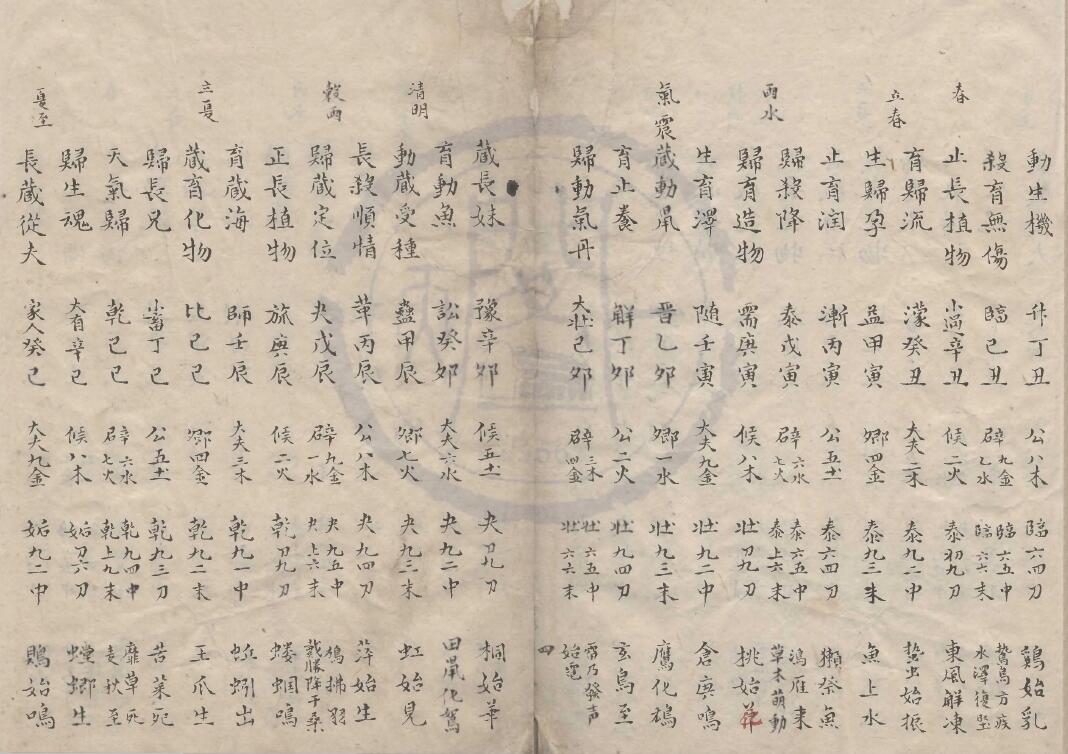 動生機 升丁丑 公八木 臨六四刀 鷄始乳
殺育無傷 臨己丑 辟九金乙水 臨六五中臨六六末 鷙鳥方疾水澤復堅
春 止長植物 小過辛丑 候二火 泰初九刀 東風解凍
立春 育歸流 濛癸丑 大夫二木 泰九二中 蟄虫始振
生歸孕 益甲寅 卿四金 泰九三末 魚上水
止育润 漸丙寅 公五土 泰六四刀 獺祭魚
雨水 歸殺降 泰戊寅 辟六水七火 泰六五中泰上六末 鴻雁来草木萌動
歸育造物 需庚寅 候八木 壯刀九刀 桃始花
生育澤 随壬寅 大夫九金 壯九二中 倉庚鳴
氣震藏動鼠 晋乙夘 卿一水 壯九三末 鷹化鳩
育止養 解丁夘 公二火 壯九四刀 玄鳥至
歸動氣丹 大壯己夘 辟三木四金 壯六五中壯六六末 雷乃發声始電
四
藏長妹 豫辛夘 候五土 夬刀九刀 桐始華
育動魚 訟癸夘 大夫六水 夬九二中 田鼠化駕
清明 動藏受種 蠱甲辰 卿七火 夬九三末 虹始見
長殺順情 革丙辰 公八木 夬九四刀 萍始生
榖雨 歸藏定位 夬戊辰 辟九金一水 夬九五中夬上六末 鳩拂羽戴勝降于桑
正長植物 旅庚辰 候二火 乾刀九刀 蝼蝈鳴
育藏海 師壬辰 大夫三木 乾九一中 蚯蚓出
立夏 藏育化物 比己巳 卿四金 乾九二末 王爪生
歸長兄 小畜丁巳 公五土 乾九三刀 苦菜死
天氣歸 乾己巳 辟六水七火 乾九四中乾上九末 靡草死麦秋至
歸生魂 大有辛巳 候八木 姤刀六刀 螳螂生
夏至 長藏從夫 家人癸巳 大夫九金 姤九二中 鵙始鳴